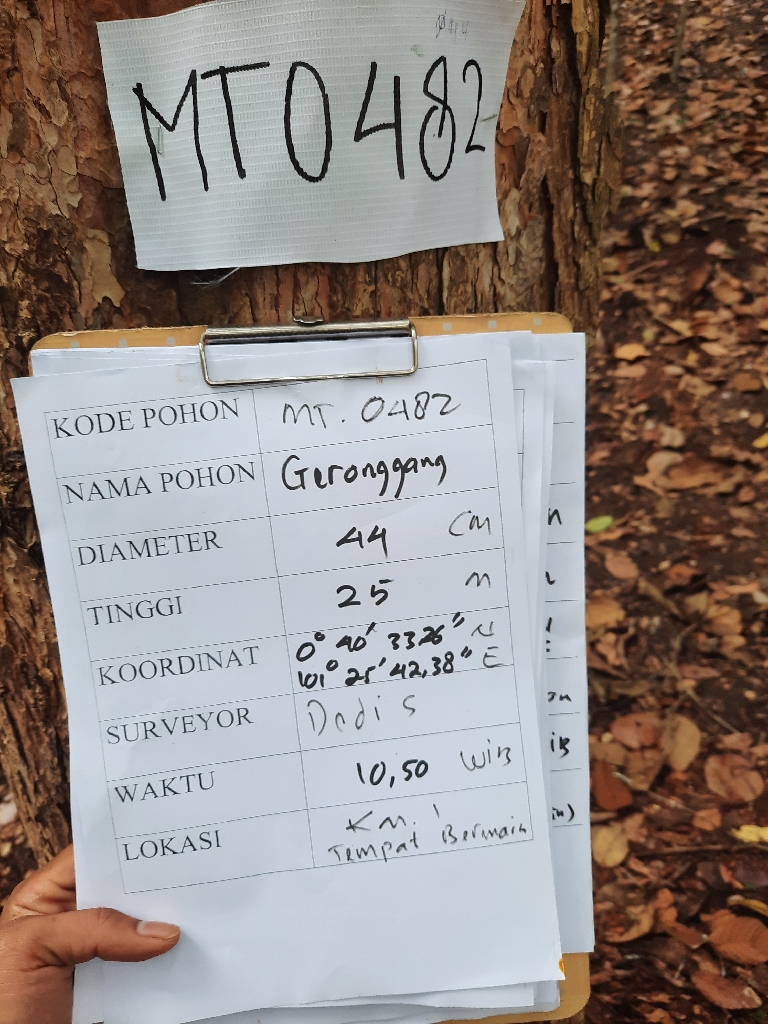 MT0482
KODE POHON MT. 0482
NAMA POHON Geronggang
DIAMETER 44 cm
TINGGI 25 m
KOORDINAT 0° 40' 33.26" N
101° 25' 42,38" E
SURVEYOR Dedi S
WAKTU 10,50 WIB
LOKASI KM. 1
Tempat Bermain